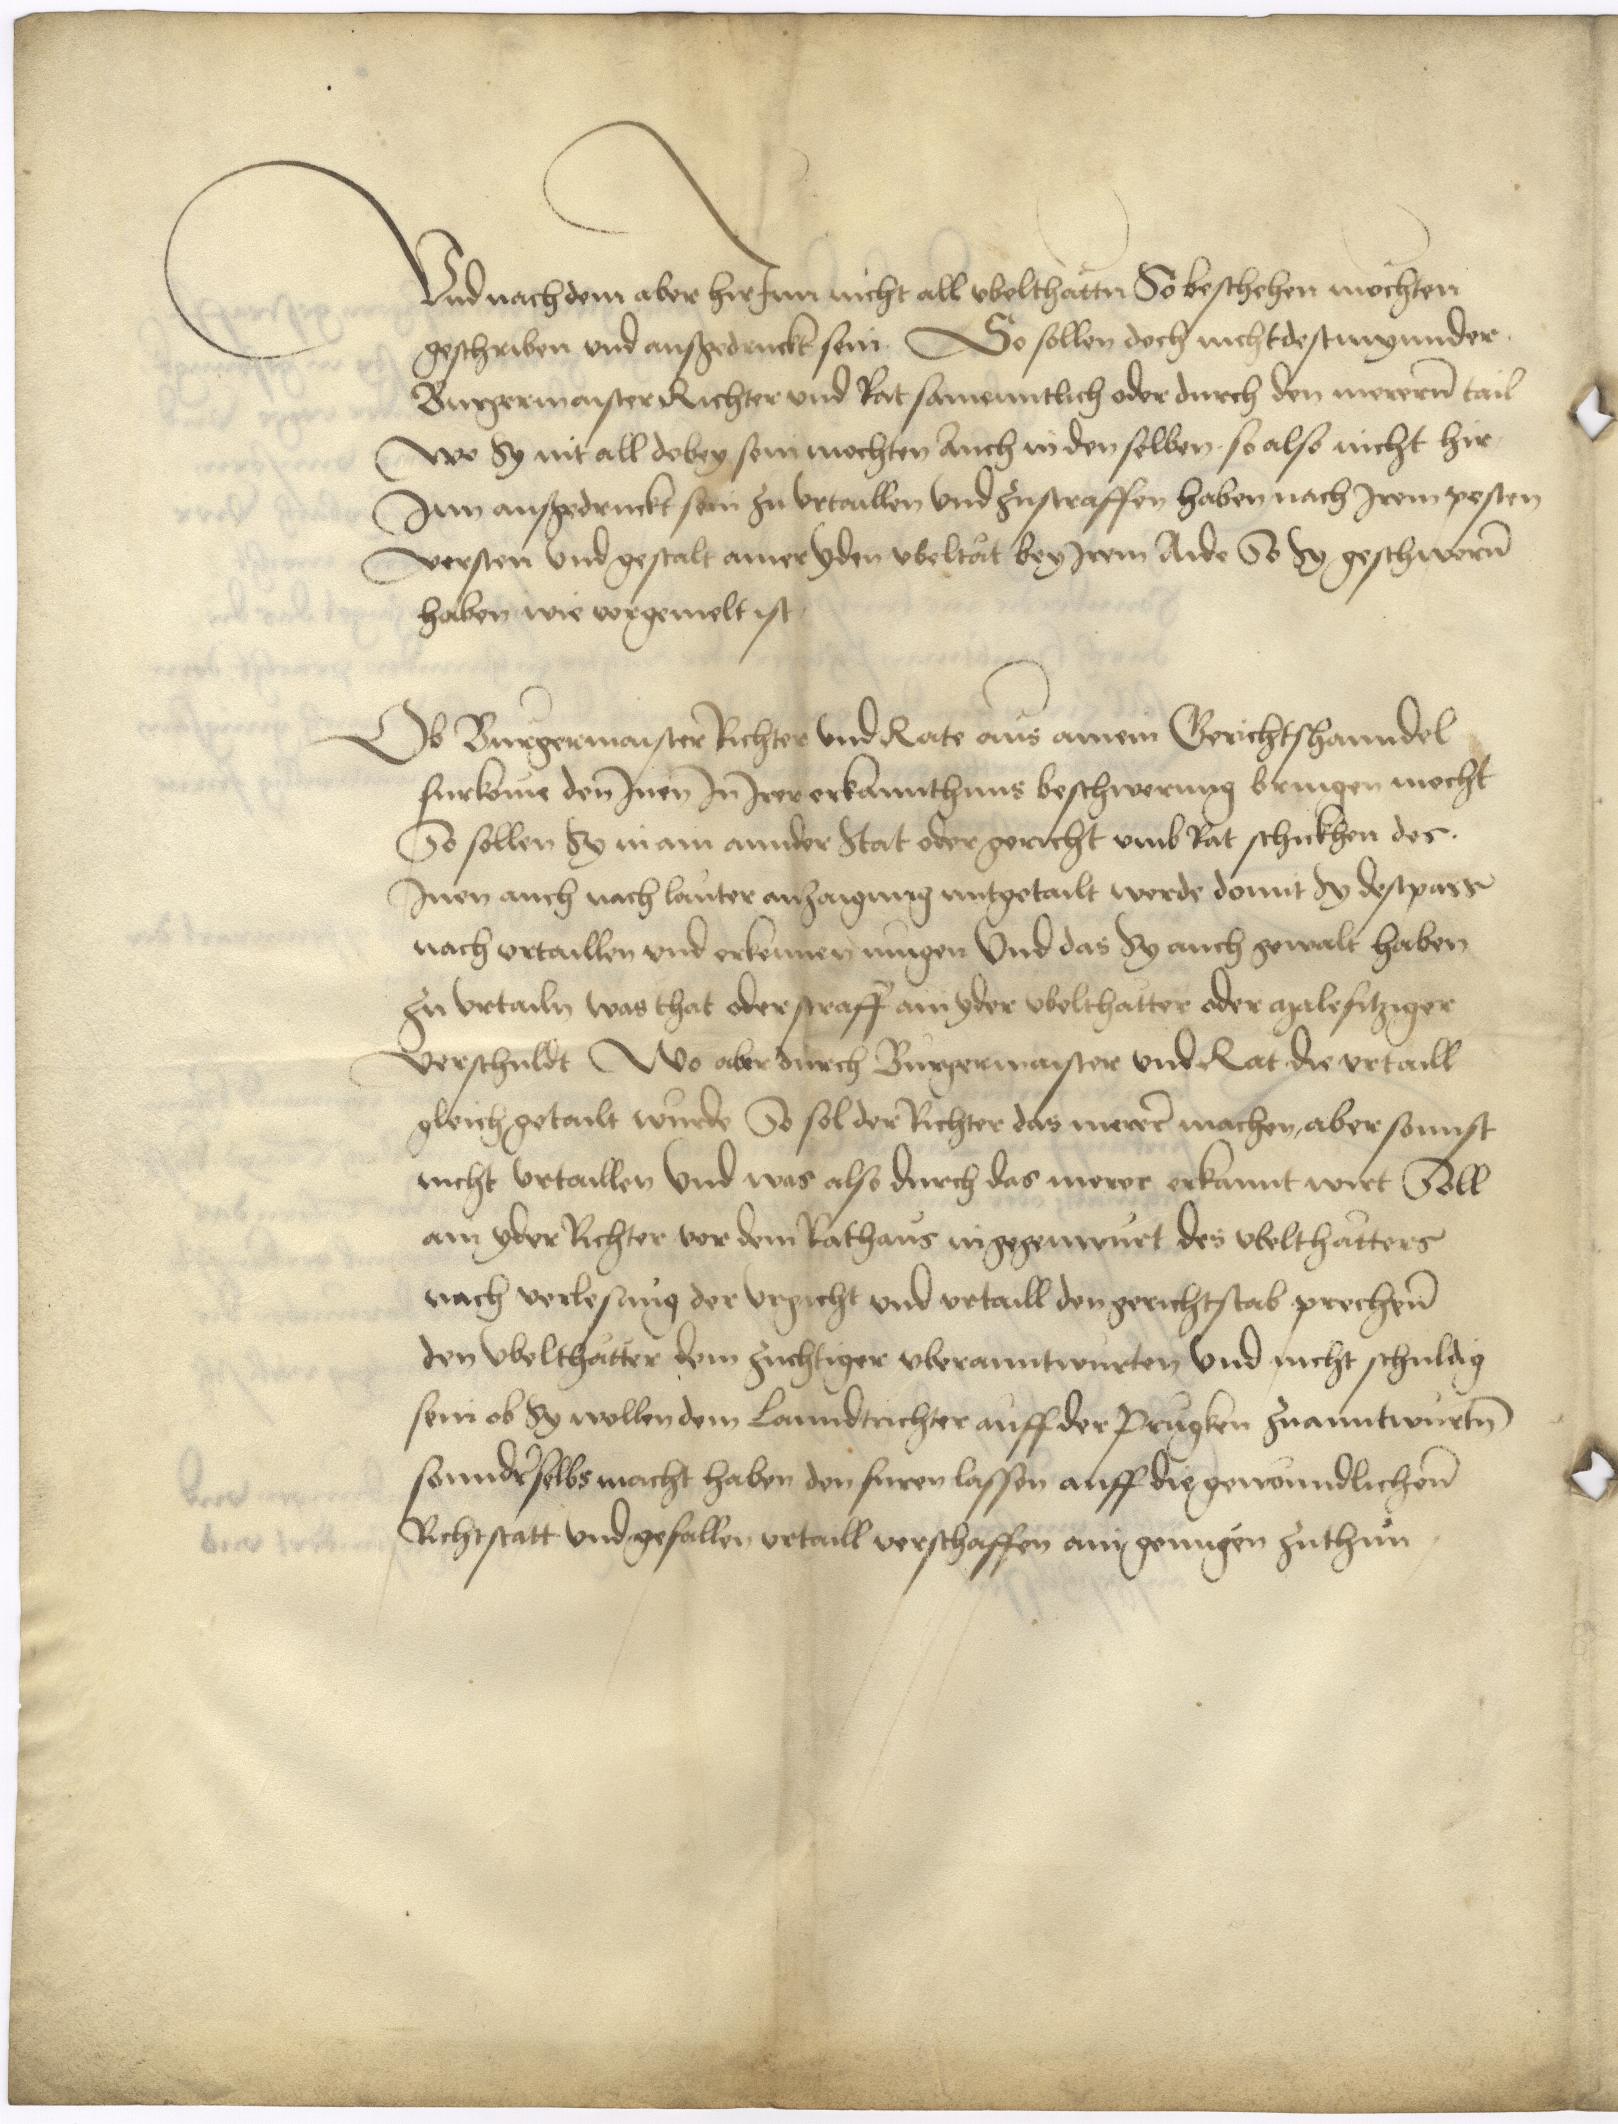 Und nachdem aber hirInn nicht all vbelthättn So beschehen möchten
geschriben vnd außgedruckt sein. So sollen doch nicht destmynnder.
Burgermaister Richter vnd Rat samenntlich oder durch den merern̄ tail
wo Sy nit all dobey sein mochten Auch in den selben. so also nicht hir
Inn außgedruckt sein zu vrtaillen vnd zustraffen haben nach Irem pesten
versten vnd gestalt ainer yden vbeltät bey Irem Aide So Sy geschworn̄
haben wie vorgemelt ist
Ob Burgermaister Richter vnd Rate aus ainem Gerichtshanndel
furkome den Inen In Irer erkanntnus beschwerung bringen mecht
So sollen Sy in ain annder Stat oder gericht vmb Rat schickhen des.
Inen auch nach lauter anzaigung mitgetailt werde domit Sy destpass
nach vrtaillen vnd erkennen mugen Vnd das Sy auch gewalt haben
zu vrtailn was that oder straff ain yder vbelthätter oder malefitziger
verschuldt Wo aber durch Burgermaister vnd Rat die vrtaill
gleich getailt wurde So sol der Richter das merer machen, aber sonnst
nicht vrtaillen Vnd was also durch das merer erkannt wirt Soll
ain yder Richter vor dem Rathaus in gegenwurt des vbelthätters
nach verlesung der vrgicht vnd vrtaill den gerichtstab prechen̄
den vbelthätter dem zuchtiger vberanntwurten Vnd nicht schuldig
sein ob Sy wollen dem Lanndtrichter auff der Prugken zuanntwurtn̄
sonnder selbs macht haben den furen lassen auff die gewonndlichen̄
Richtstatt vnd gefallen vrtaill verschaffen ain genugen zuthun